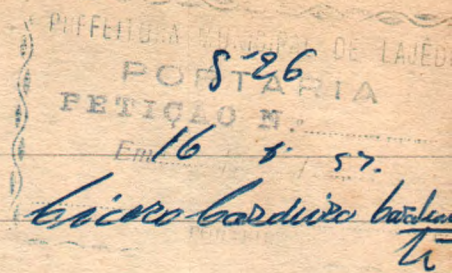 PREFEITURA MUNICIPAL DE LAJEDO
526
PORTARIA
PETIÇÃO N.º
Em 16 8 57.
Cicero Cordeiro